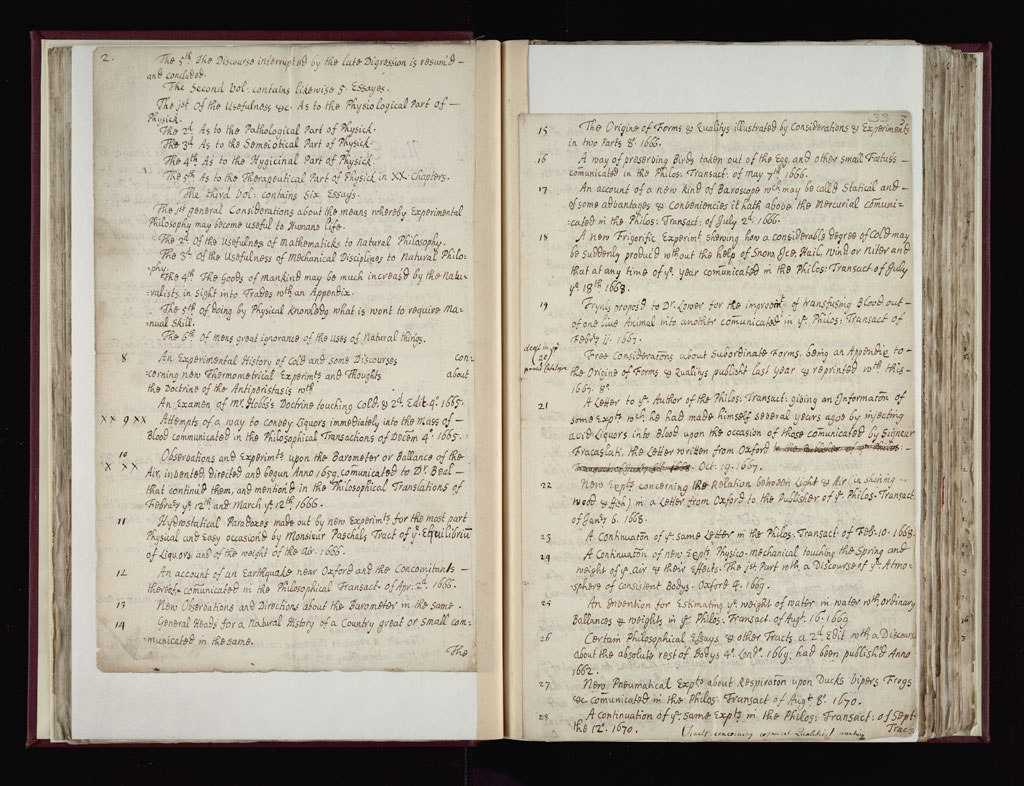 2.
The 5th The Discourse interrupted by the late Digression is resum'd –
and concluded.
The Second Vol: contains likewise 5 Essayes.
The jst Of the Usefulness &c. As to the Physiological Part of –
Physick.
The 2d As to the Pathological Part of Physick.
The 3d As to the Semeiotical Part of Physick.
The 4th As to the Hygieinal Part of Physick.
The 5th As to the Therapeutical Part of Physick in XX Chapters.
The third Vol: contains Six Essays.
The jst general Considerations about the means whereby Experimental
Philosophy may become useful to Humane life.
The 2d Of the Usefulness of Mathematicks to Natural Philosophy.
The 3d Of the Usefulness of Mechanical Disciplines to Natural Philo-
phy.
The 4th The Goods of Mankind may be much increas'd by the Natu-
ralists in sight into Trades wth an Appendix.
The 5th Of doing by Physical knowledg what is wont to require Ma-
nual Skill.
The 6th Of mens great ignorance of the Uses of Natural things.
8 An Experimental History of Cold and some Discourses con-
cerning new Thermometrical Experimts and Thoughts about
the Doctrine of the Antiperistasis wth
An Examen of Mr. Hobbs's Doctrine touching Cold. & 2d. Edit. 4o. 1665.
XX 9 XX Attempts of a way to convey Liquors immediately into the Mass of –
Blood communicated in the Philosophical Transactions of Decem 4o. 1665.
10
X XX Observations and Experimts upon the Barometer or Ballance of the
Air, invented, directed and begun Anno 1659, comunicated to Dr. Beal –
that continu'd them, and mention'd in the Philosophical Translations of
Febrary ye. 12th. and March ye. 12th. 1666.
11 Hydrostatical Paradoxes made out by new Experimts for the most part
Physical and Easy occasion'd by Monsieur Paschals Tract of ye. Equilibrium
of Liquors and of the weight of the Air. 1666.
12 An account of an Earthquake near Oxford and the Concomitants –
thereof comunicated in the Philosophical Transact. of Apr. 2d. 1666.
13 New Observations and Directions about the Barometer in the same.
14 General Heads for a Natural History of a Country great or small com-
municated in the same.
The
33 3
15 The Origine of Forms & Qualitys illustrated by Considerations & Experiments
in two Parts 8o. 1666.
16 A way of preserving Birds taken out of the Egg, and other small Fœtus's –
comunicated in the Philos: Transact: of May 7th. 1666.
17 An account of a new kind of Baroscope wch may be call'd Statical and –
of some advantages & Conveniencies it hath above the Mercurial comuni-
cated in the Philos: Transact: of July 2d. 1666.
18 A new Frigorific Experimt shewing how a considerable degree of Cold may
be suddenly produc'd without the help of Snow, Ice, Hail, Wind or Niter and
that at any time of ye. year comunicated in the Philos: Transact. of July
ye. 18th. 1668.
19 Tryals propos'd to Dr. Lower for the improvmt of transfusing Blood out –
of one live Animal into another comunicated in ye. Philos: Transact of
Febry 11. 1667.
(20) Free Consideratons about Subordinate Forms, being an Appendix to –
the Origine of Forms & Qualitys publisht last year & reprinted wth this –
1667. 8o.
21 A Letter to ye. Author of the Philos: Transact: giving an Informaton of
some Expts wch. he had made himself several years agoe by injecting
acid Liquors into Blood upon the occasion of those comunicated by Signeur
Fracassati, the Letter written from Oxford
Oct. 19. 1667.
22 New Expts concerning the Relation between Light & Air (in Shining –
Wood & Fish) in a Letter from Oxford to the Publisher of ye. Philos: Transact.
of Janry 6. 1668.
23 A Continuaton of ye. same Letter in the Philos: Transact of Feb. 10. 1668.
24 A Continuaton of new Expts Physico-Mechanical touching the Spring and
weight of ye. Air & their Effects. The jst Part wth a Discourse of ye. Atmo-
sphere of Consistent Bodys. Oxford 4. 1669.
25 An Invention for Estimating ye. weight of water in water wth ordinary
Ballances & weights in ye. Philos. Transact. of Augt. 16. 1669.
26 Certain Philosophical Essays & other Tracts a 2d Edit wth a Discours
about the absolute rest of Bodys 4o. Londn. 1669. had been publish'd Anno
1662.
27 New Pneumatical Expts about Respiraton upon Ducks Vipers Frogs
&c comunicated in the Philos: Transact of Augt 8o. 1670.
28 A continuation of ye. same Expts in the Philos: Transact: of Sept
the 12o. 1670.
(Tracts concerning cosmical Qualities)
Tracts